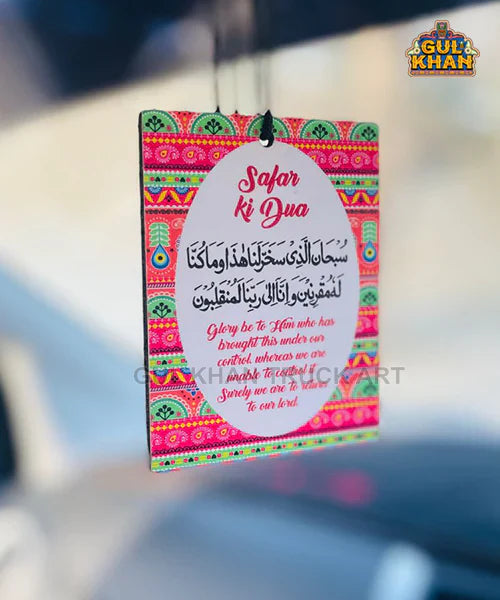 GUL KHAN
Safar
ki Dua
سُبْحَانَ الَّذِىْ سَخَّرَلَنَا هٰذَا وَمَا كُنَّا
لَهٗ مُقْرِنِيْنَ وَاِنَّا اِلٰى رَبِّنَا لَمُنْقَلِبُوْنَ
Glory be to Him who has
brought this under our
control, whereas we are
unable to control it
Surely we are to return
to our lord.
GUL KHAN TRUCK ART